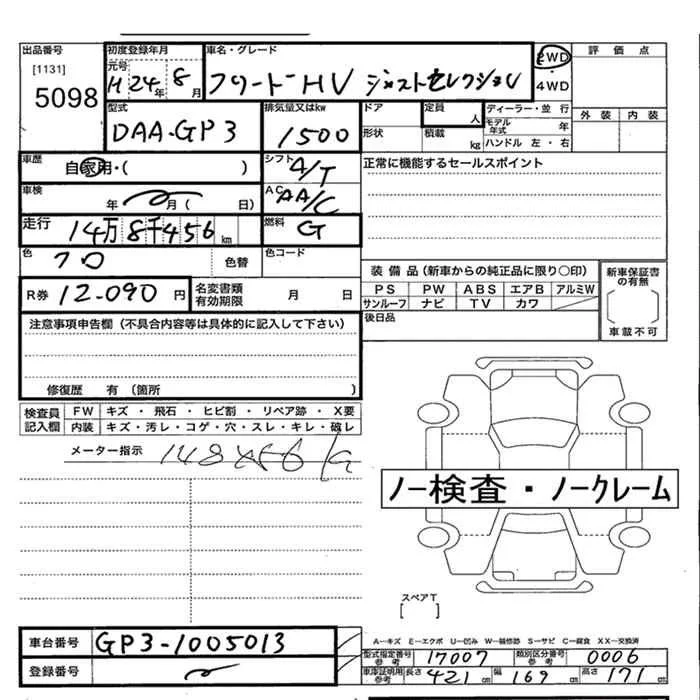 出品番号 初度登録年月 車名・グレード 2WD 評価点
[1131] 元号 H 24年 8月 フリードHV ジャストセレクション 4WD
5098 型式 排気量又はkw ドア 定員 人 ディーラー・並行 外装 内装
DAA-GP3 1500 形状 積載 kg モデル年式 年
ハンドル 左・右
車歴 自家用・( ) シフト A/T 正常に機能するセールスポイント
車検 年 月( 日) AC AA/C
走行 14万8千456km 燃料 G
色 クロ 色替 色コード
装備品(新車からの純正品に限り○印) 新車保証書の有無
R券 12-090円 名変書類有効期限 月 日 PS PW ABS エアB アルミW
サンルーフ ナビ TV カワ 車載不可
注意事項申告欄(不具合内容等は具体的に記入して下さい) 後日品
修復歴 有 (箇所 )
検査員記入欄 FW キズ・飛石・ヒビ割・リペア跡・X要
内装 キズ・汚レ・コゲ・穴・スレ・キレ・破レ
メーター指示 148456K
ノー検査・ノークレーム
スペアT
[ ]
A-キズ E-エクボ U-凹み W-補修跡 S-サビ C-腐食 XX-交換済
車台番号 GP3-1005013 型式指定番号参考 17007 類別区分番号参考 0006
登録番号 車庫証明用参考 長さ 421cm 幅 169cm 高さ 171cm